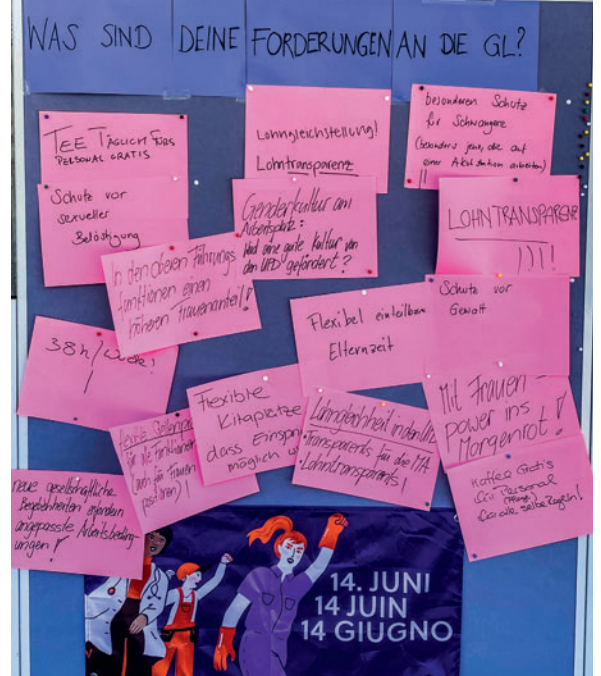 WAS SIND DEINE FORDERUNGEN AN DIE GL?
TEE TÄGLICH FÜRS
PERSONAL GRATIS
Lohngleichstellung!
Lohntransparenz
besonderen Schutz
für Schwangere
(besonders jene, die auf
einer Akutstation arbeiten)
!!
Schutz vor
sexueller
Belästigung
Genderkultur am
Arbeitsplatz:
Wird eine gute Kultur von
den UPD gefördert?
LOHNTRANSPARENZ
!!!!
In den oberen Führungs
funktionen einen
höheren Frauenanteil!
Flexibel einteilbare
Elternzeit
Schutz vor
Gewalt
38h/Woche!
!
Flexible
Kitaplätze
dass Einspr
möglich
Lohngleichheit in den
• Transparents für die MA
• Lohntransparents!
Mit Frauen-
power ins
Morgenrot!
für alle Funktionen
(auch für Frauen
positionen)!
neue gesellschaftliche
Begebenheiten erfordern
angepasste Arbeitsbeding-
ungen!
Kaffee Gratis
für Personal
(Pflege)
für alle selbe Regeln!
14. JUNI
14 JUIN
14 GIUGNO